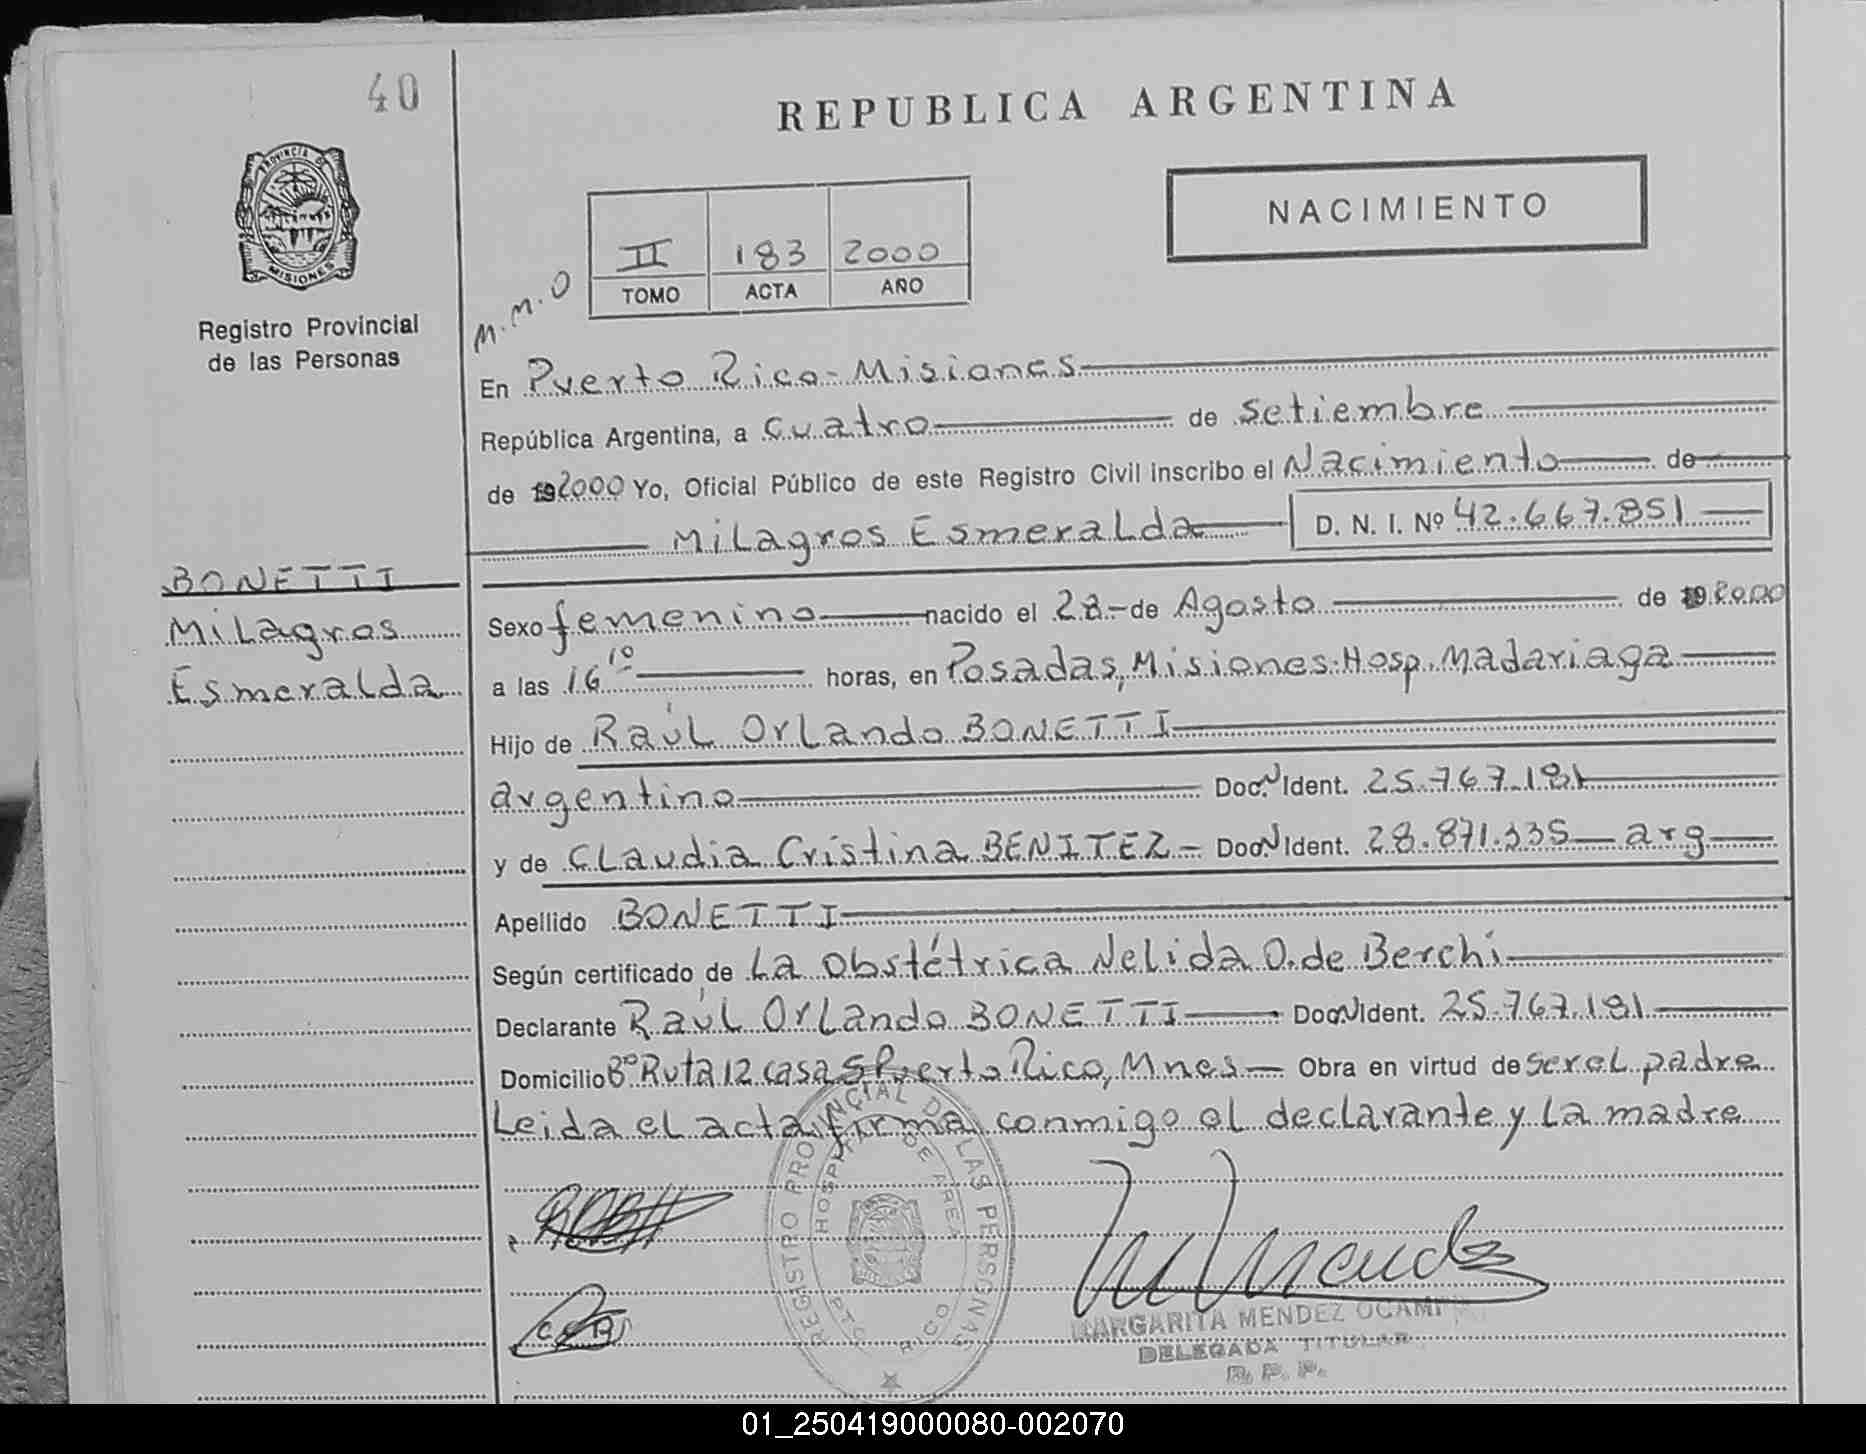 40
REPUBLICA ARGENTINA
PROVINCIA DE
MISIONES
Registro Provincial
de las Personas
NACIMIENTO
II 183 2000
TOMO ACTA AÑO
M.M.O
En Puerto Rico - Misiones
República Argentina, a cuatro de setiembre
de 192000 Yo, Oficial Público de este Registro Civil inscribo el Nacimiento de
Milagros Esmeralda D. N. I. Nº 42.667.851
BONETTI
Milagros
Esmeralda
Sexo femenino nacido el 28 - de Agosto de 192000
a las 16 10 horas, en Posadas, Misiones. Hosp. Madariaga
Hijo de Raúl Orlando BONETTI
argentino Doc. N Ident. 25.767.181
y de Claudia Cristina BENITEZ - Doc. N Ident. 28.871.335 - arg
Apellido BONETTI
Según certificado de La Obstétrica Nelida O. de Berchi
Declarante Raúl Orlando BONETTI Doc N Ident. 25.767.181
Domicilio Bº Ruta 12 casa 5 Puerto Rico, Mnes - Obra en virtud de ser el padre
Leida el acta, firma conmigo el declarante y La madre
REGISTRO PROVINCIAL DE LAS PERSONAS
HOSPITAL DE AREA
PTO. RICO
MARGARITA MENDEZ OCAMPO
DELEGADA TITULAR
R. P. P.
01_250419000080-002070